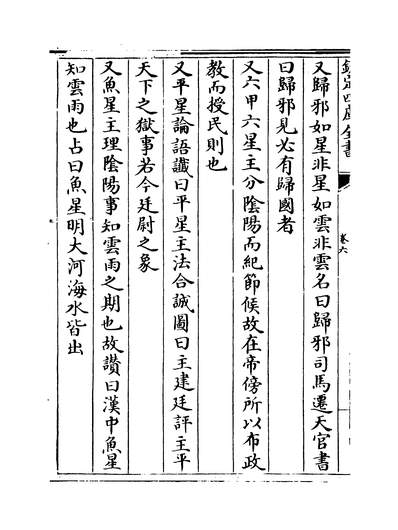 欽定四庫全書
卷六
又歸邪如星非星如雲非雲名曰歸邪司馬遷天官書
曰歸邪見必有歸國者
又六甲六星主分陰陽而紀節候故在帝傍所以布政
教而授民則也
又平星論語讖曰平星主法合誠圖曰主建廷評主平
天下之獄事若今廷尉之象
又魚星主理陰陽事知雲雨之期也故讚曰漢中魚星
知雲雨也占曰魚星明大河海水皆出